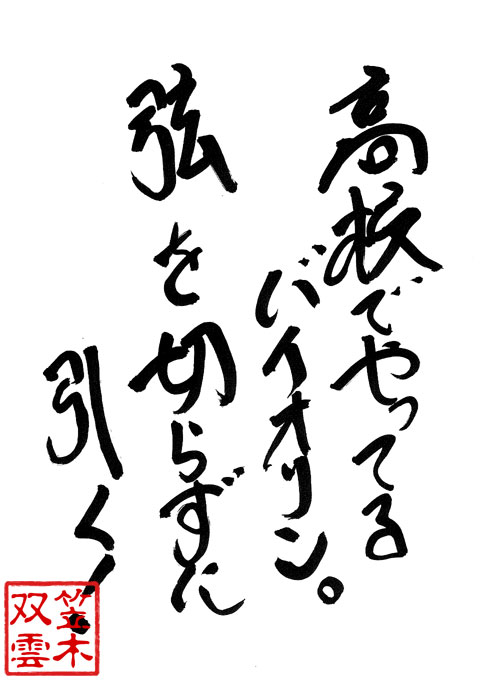 高校でやってる
バイオリン。
弦を切らずに
引く!
笠木
双雲